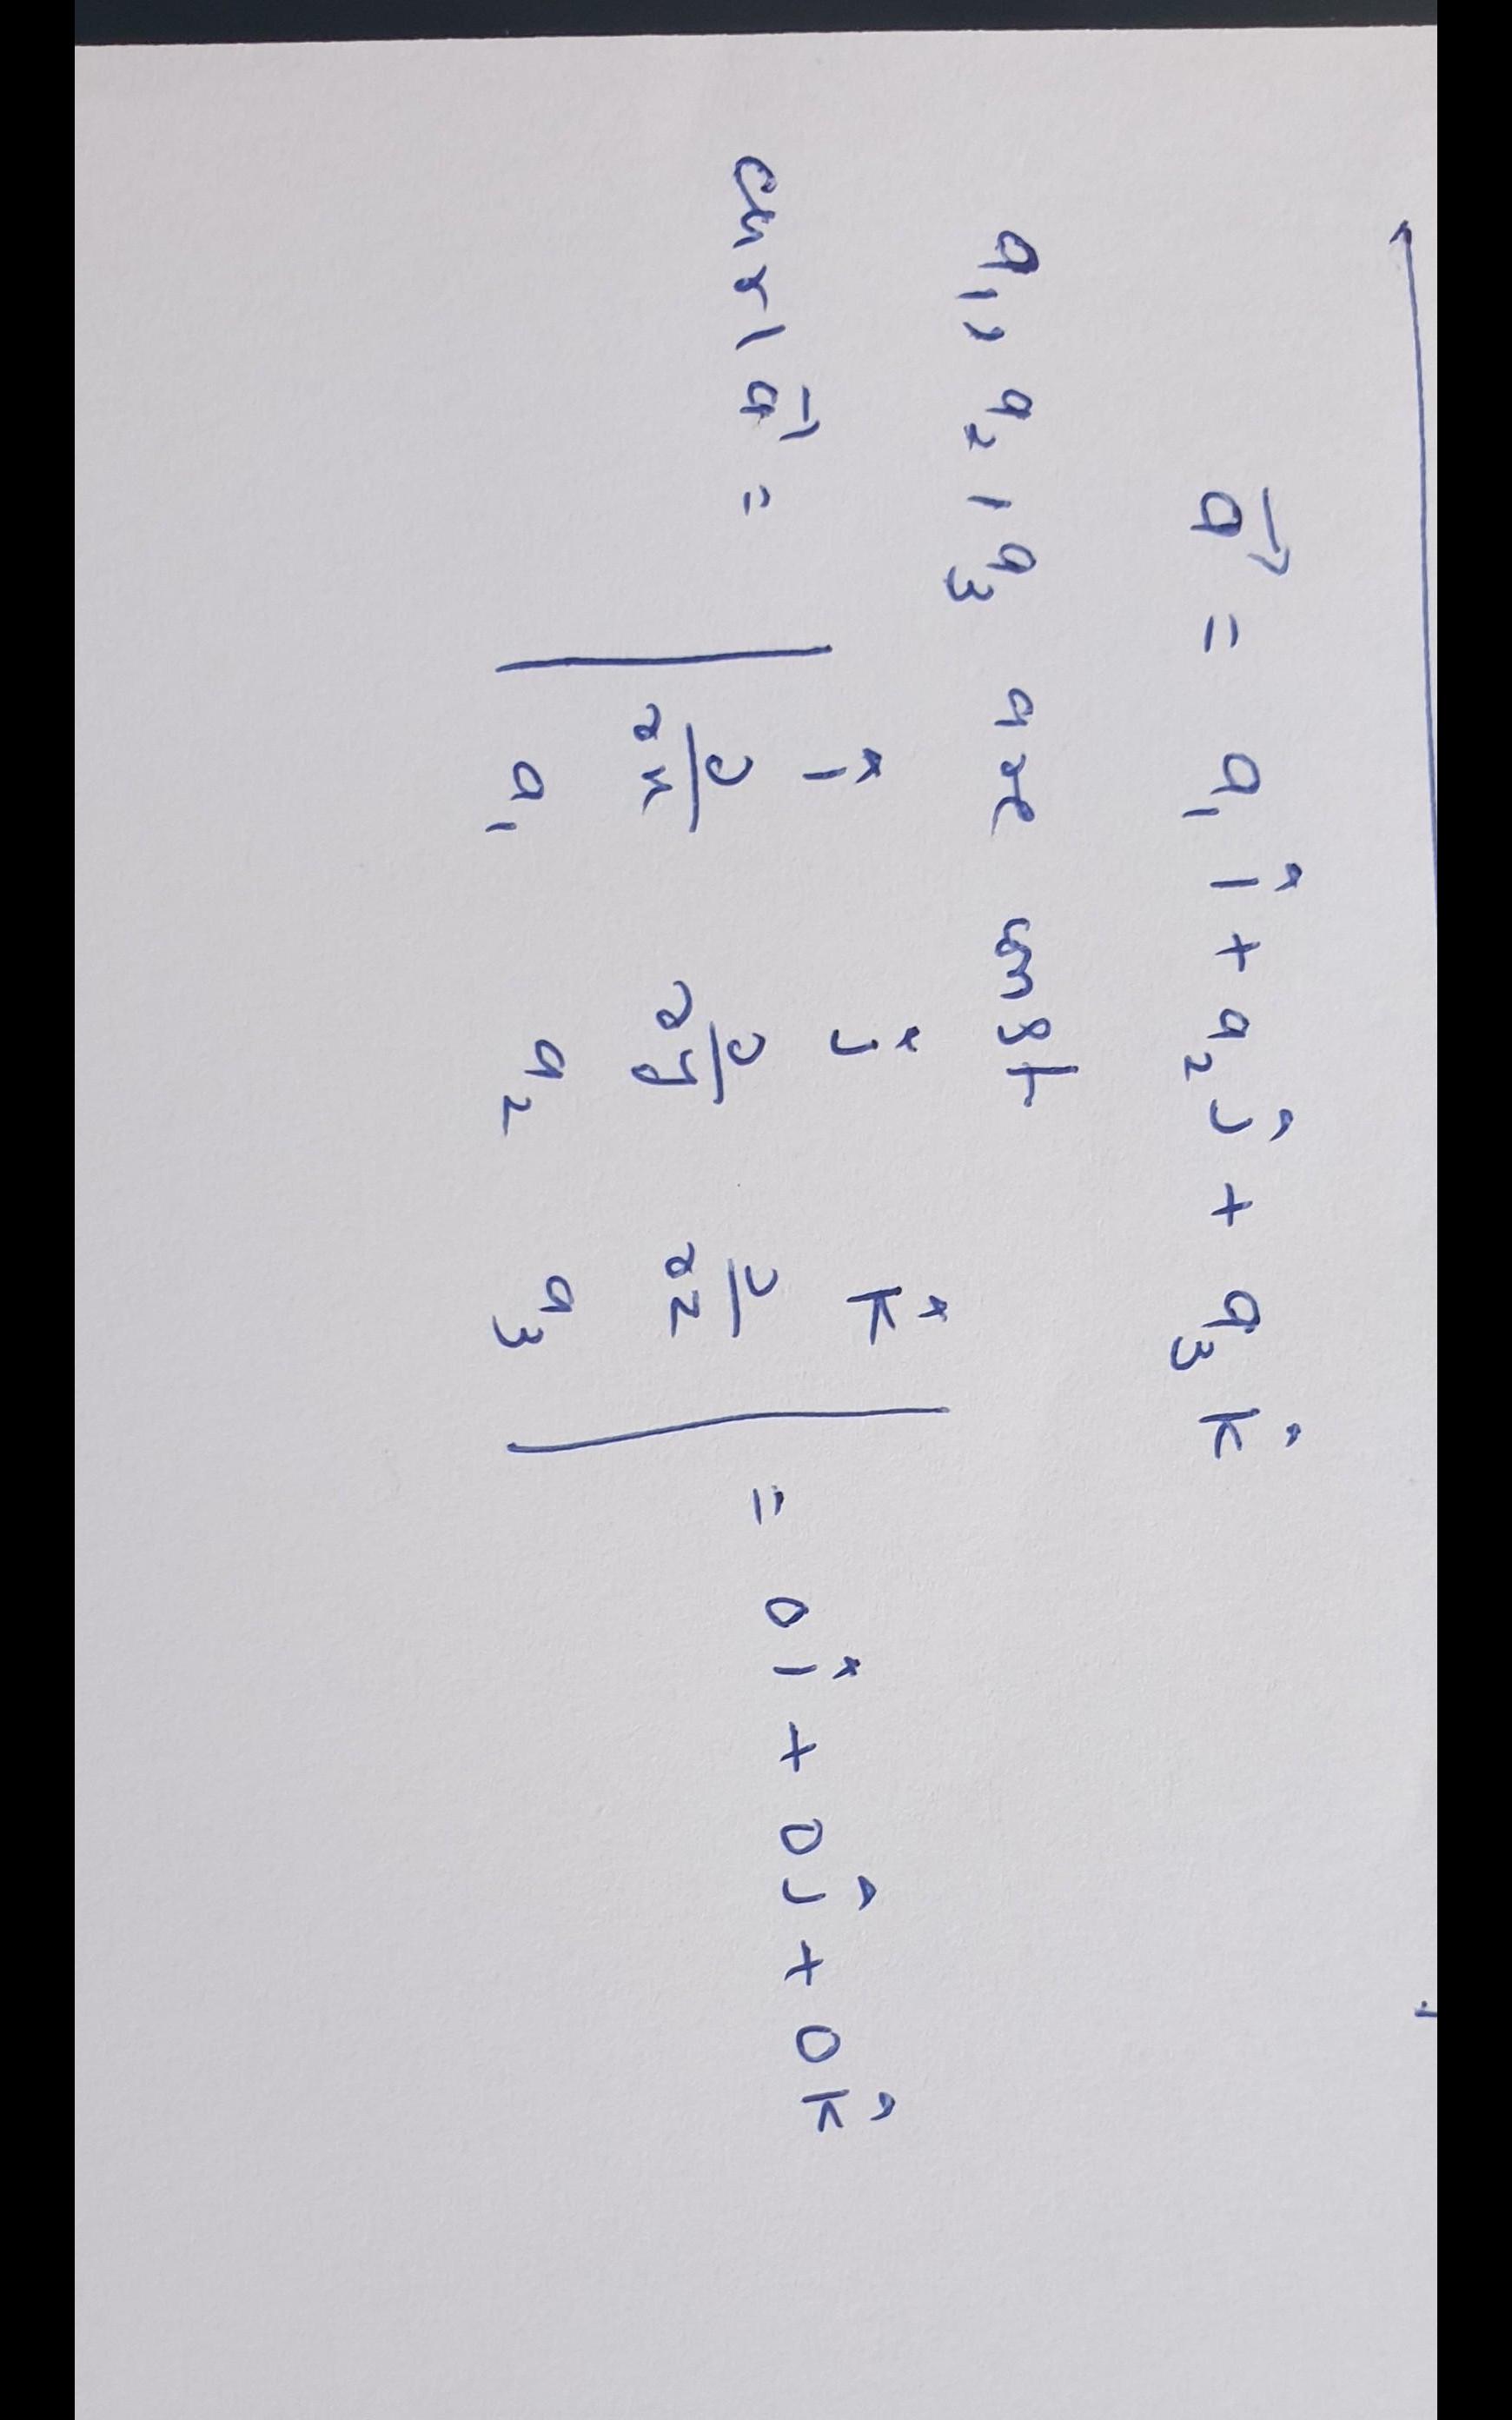 a⃗ = a₁ î + a₂ ĵ + a₃ k̂
a₁, a₂, a₃ are const
curl a⃗ = | î ĵ k̂
∂/∂x ∂/∂y ∂/∂z
a₁ a₂ a₃ | = 0 î + 0 ĵ + 0 k̂